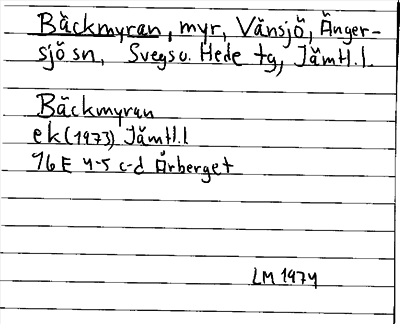 Bäckmyran, myr, Vänsjö, Änger-
sjö sn, Svegs o. Hede tg, Jämtl.l.
Bäckmyran
ek (1973) Jämtl.l
16E 4-5 c-d Örberget
LM 1974